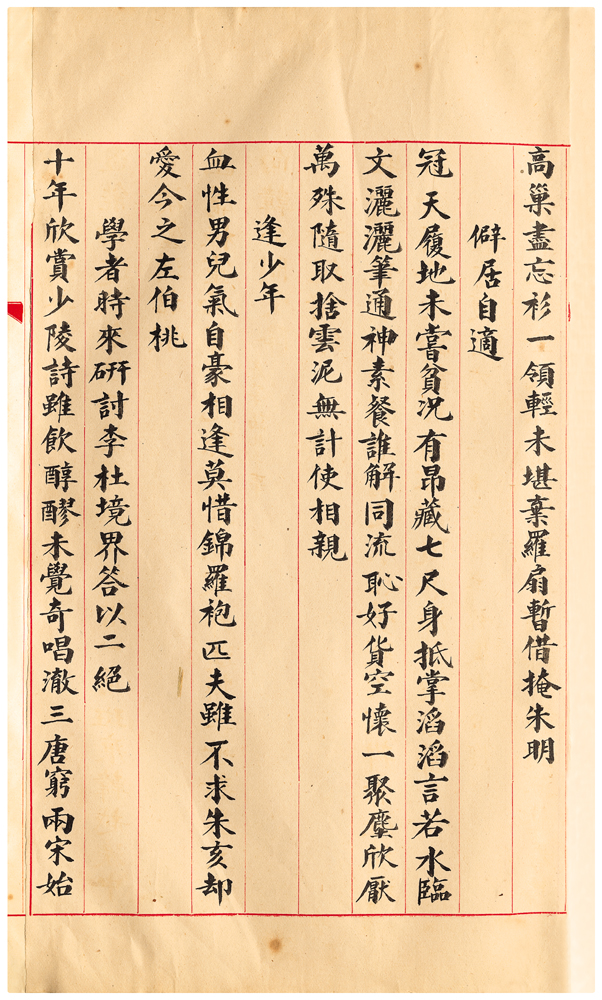 高巢盡忘衫一領輕未堪棄羅扇暫借掩朱明
僻居自適
冠天履地未嘗貧況有昂藏七尺身抵掌滔滔言若水臨
文灑灑筆通神素餐誰解同流恥好貨空懷一聚塵欣厭
萬殊隨取捨雲泥無計使相親
逢少年
血性男兒氣自豪相逢莫惜錦羅袍匹夫雖不求朱亥却
愛今之左伯桃
學者時來研討李杜境界答以二絕
十年欣賞少陵詩雖飲醇醪未覺奇唱澈三唐窮兩宋始